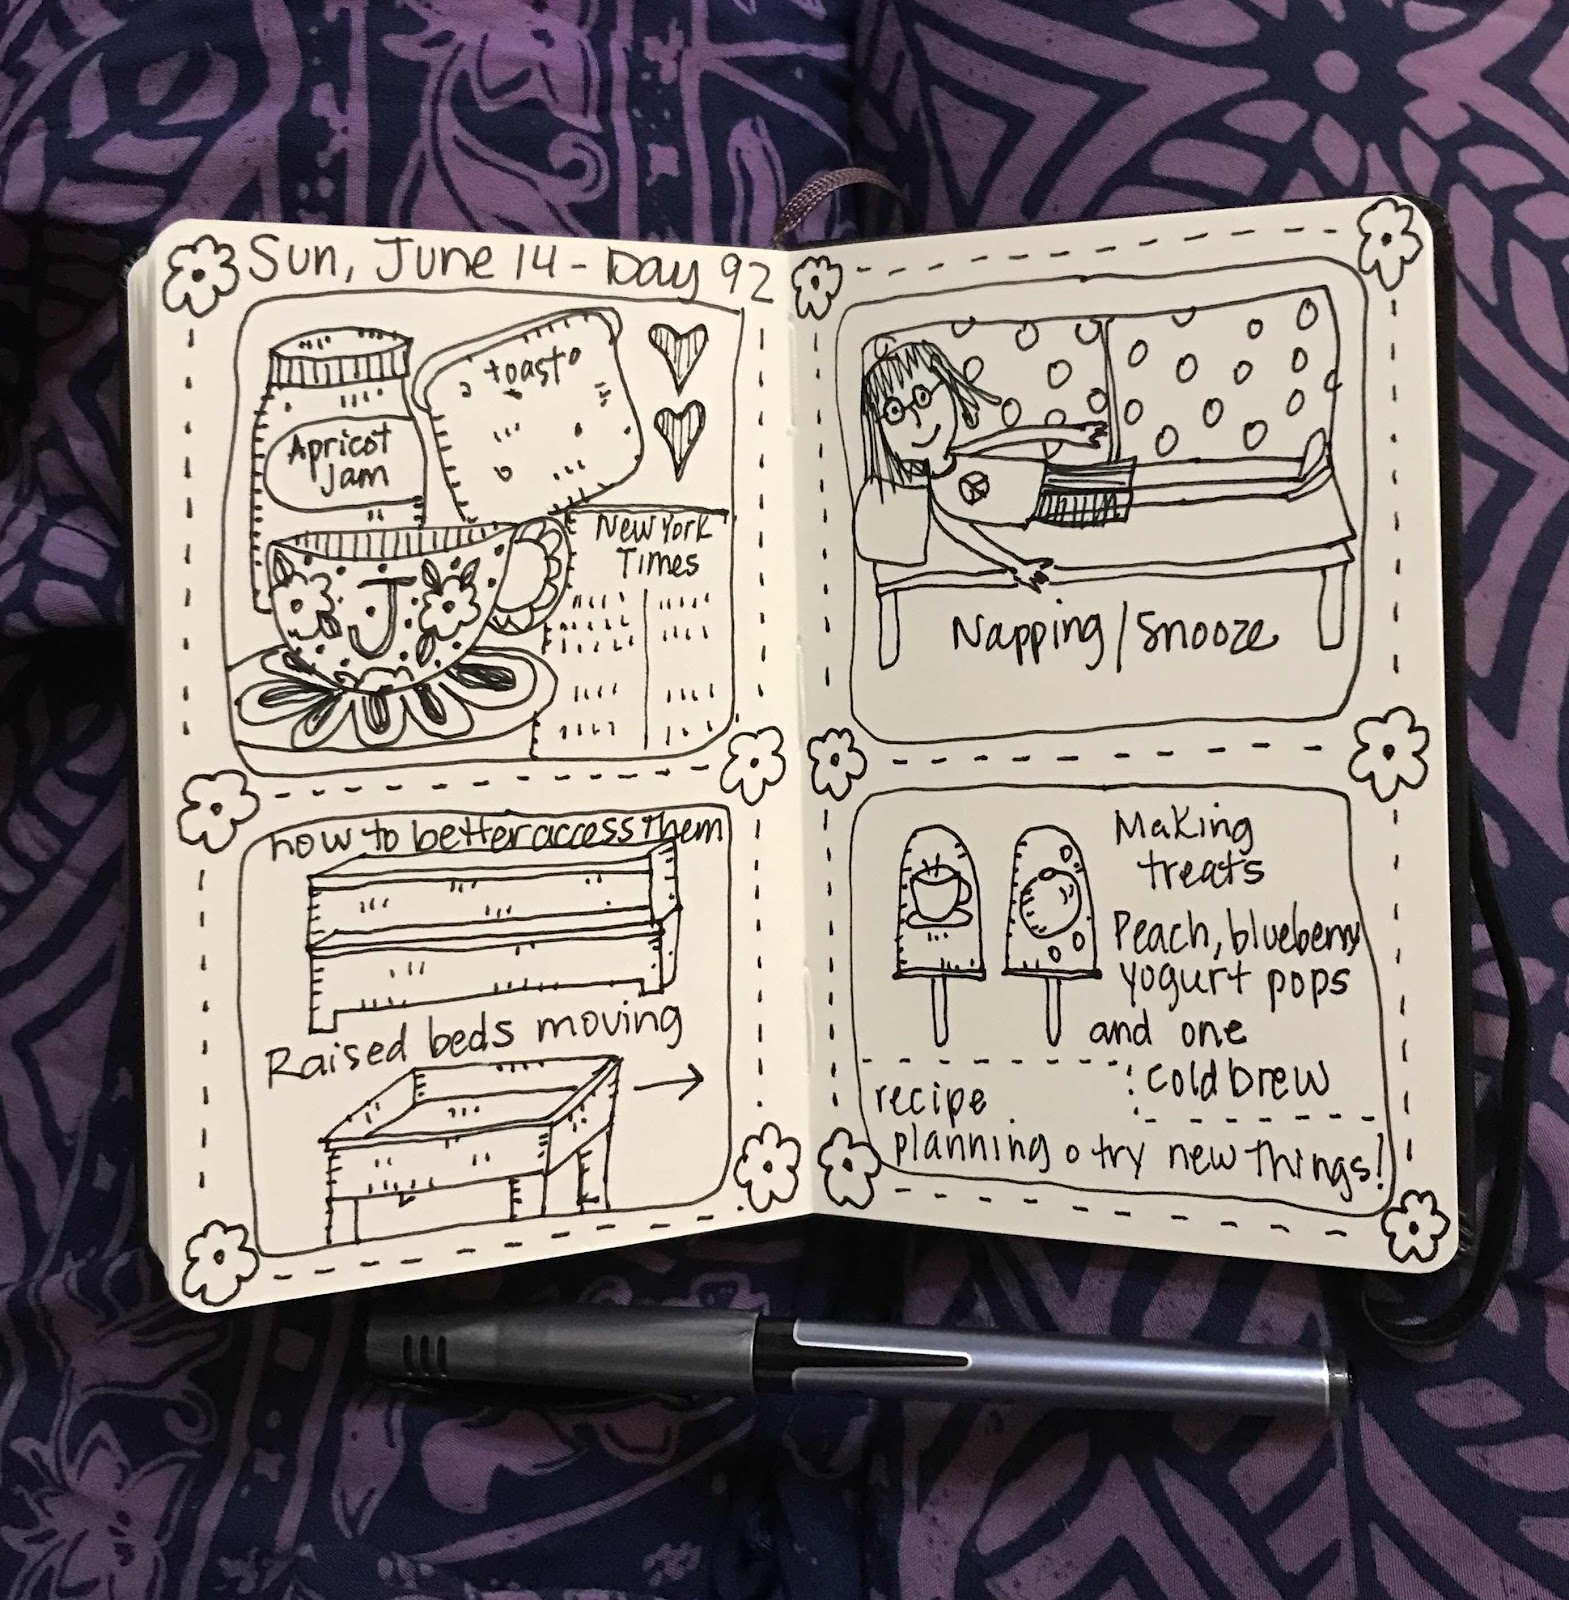 Sun, June 14 - Day 92
toast
Apricot
Jam
New York
Times
J
how to better access them
Raised beds moving
Napping/Snooze
Making
treats
Peach, blueberry
yogurt pops
and one
cold brew
recipe
planning o try new things!